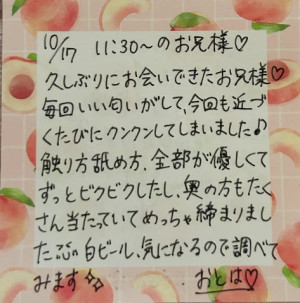 10/17 11:30〜のお兄様♡
久しぶりにお会いできたお兄様♡
毎回いい匂いがして、今回も近づ
くたびにクンクンしてしまいました♪
触り方舐め方、全部が優しくて
ずっとビクビクしたし、奥の方もたく
さん当たっていてめっちゃ締まりまし
た 白ビール、気になるので調べて
みます✨ おとは♡